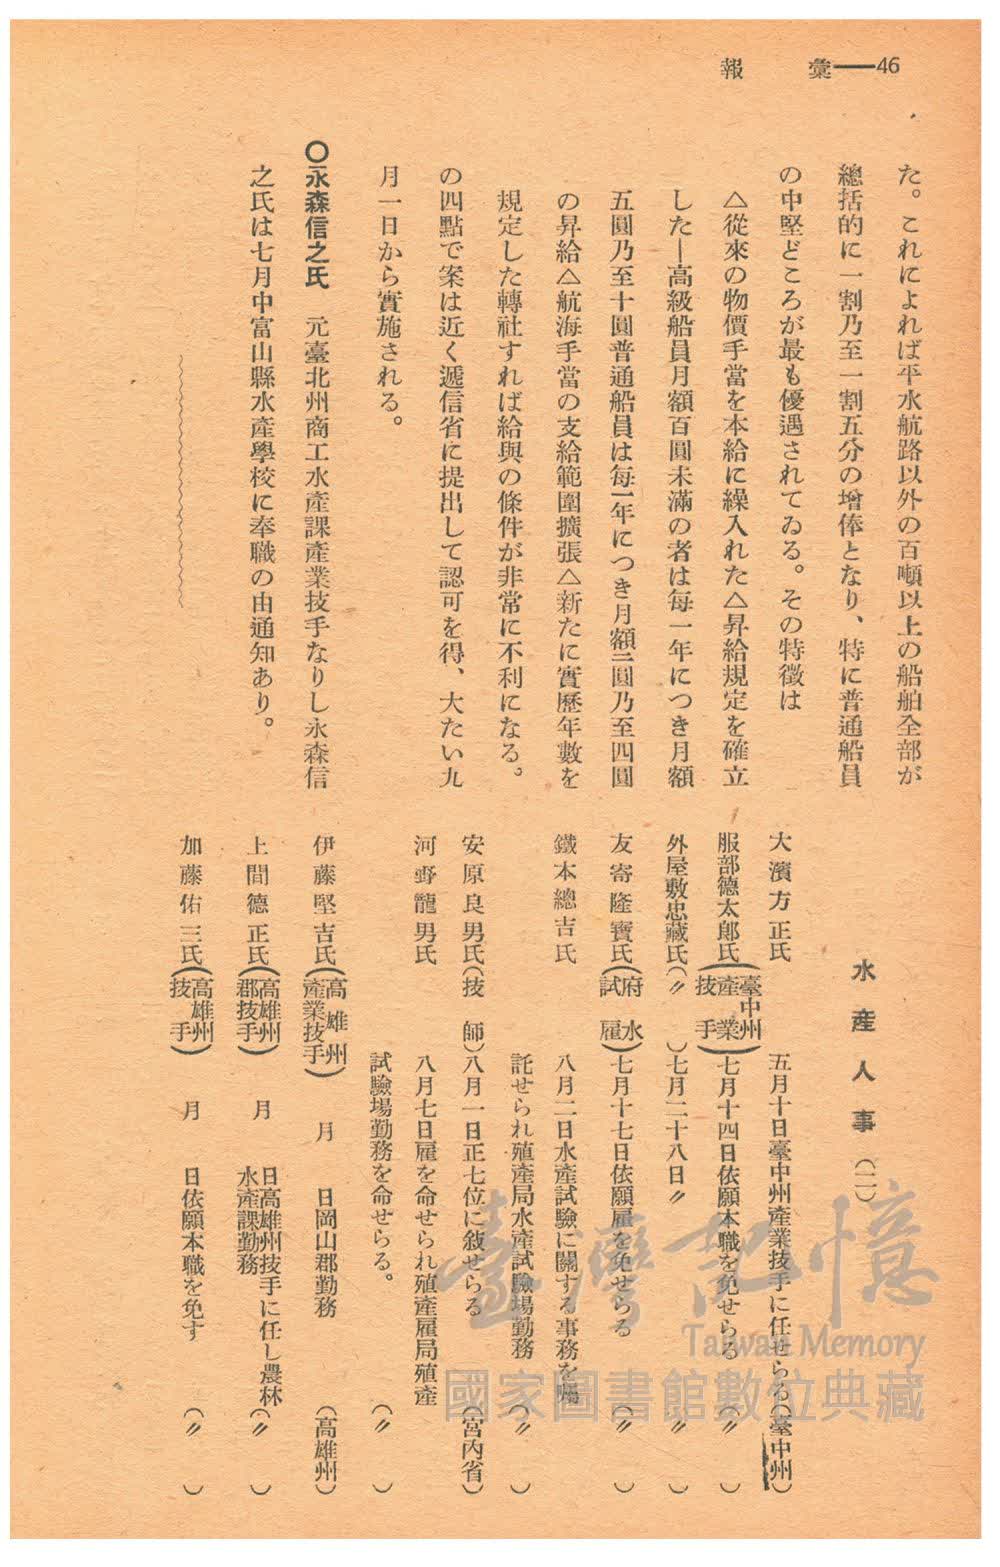 彙報——46
た。これによれば平水航路以外の百噸以上の船舶全部が
總括的に一割乃至一割五分の增俸となり、特に普通船員
の中堅どころが最も優遇されてゐる。その特徵は
△從來の物價手當を本給に繰入れた△昇給規定を確立
した—高級船員月額百圓未滿の者は每一年につき月額
五圓乃至十圓普通船員は每一年につき月額三圓乃至四圓
の昇給△航海手當の支給範圍擴張△新たに實歷年數を
規定した轉社すれば給與の條件が非常に不利になる。
の四點で案は近く遞信省に提出して認可を得、大たい九
月一日から實施される。
〇永森信之氏 元臺北州商工水產課產業技手なりし永森信
之氏は七月中富山縣水產學校に奉職の由通知あり。
水產人事(二)
大濱方正氏 五月十日臺中州產業技手に任せらる(臺中州)
服部德太郞氏(臺中州產業技手)七月十四日依願本職を免せらる(〃)
外屋敷忠藏氏(〃)七月二十八日〃 〃(〃)
友寄隆寶氏(府水試雇)七月十七日依願雇を免せらる(〃)
鐵本總吉氏 八月二日水產試驗に關する事務を囑
託せられ殖產局水產試驗場勤務(〃)
安原良男氏(技師)八月一日正七位に敍せらる(宮內省)
河野龍男氏 八月七日雇を命せられ殖產雇局殖產
試驗場勤務を命せらる。(〃)
伊藤堅吉氏(高雄州產業技手) 月 日岡山郡勤務(高雄州)
上間德正氏(高雄州郡技手) 月 日高雄州技手に任し農林
水產課勤務(〃)
加藤佑三氏(高雄州技手) 月 日依願本職を免す(〃)
臺灣記憶
Taiwan Memory
國家圖書館數位典藏